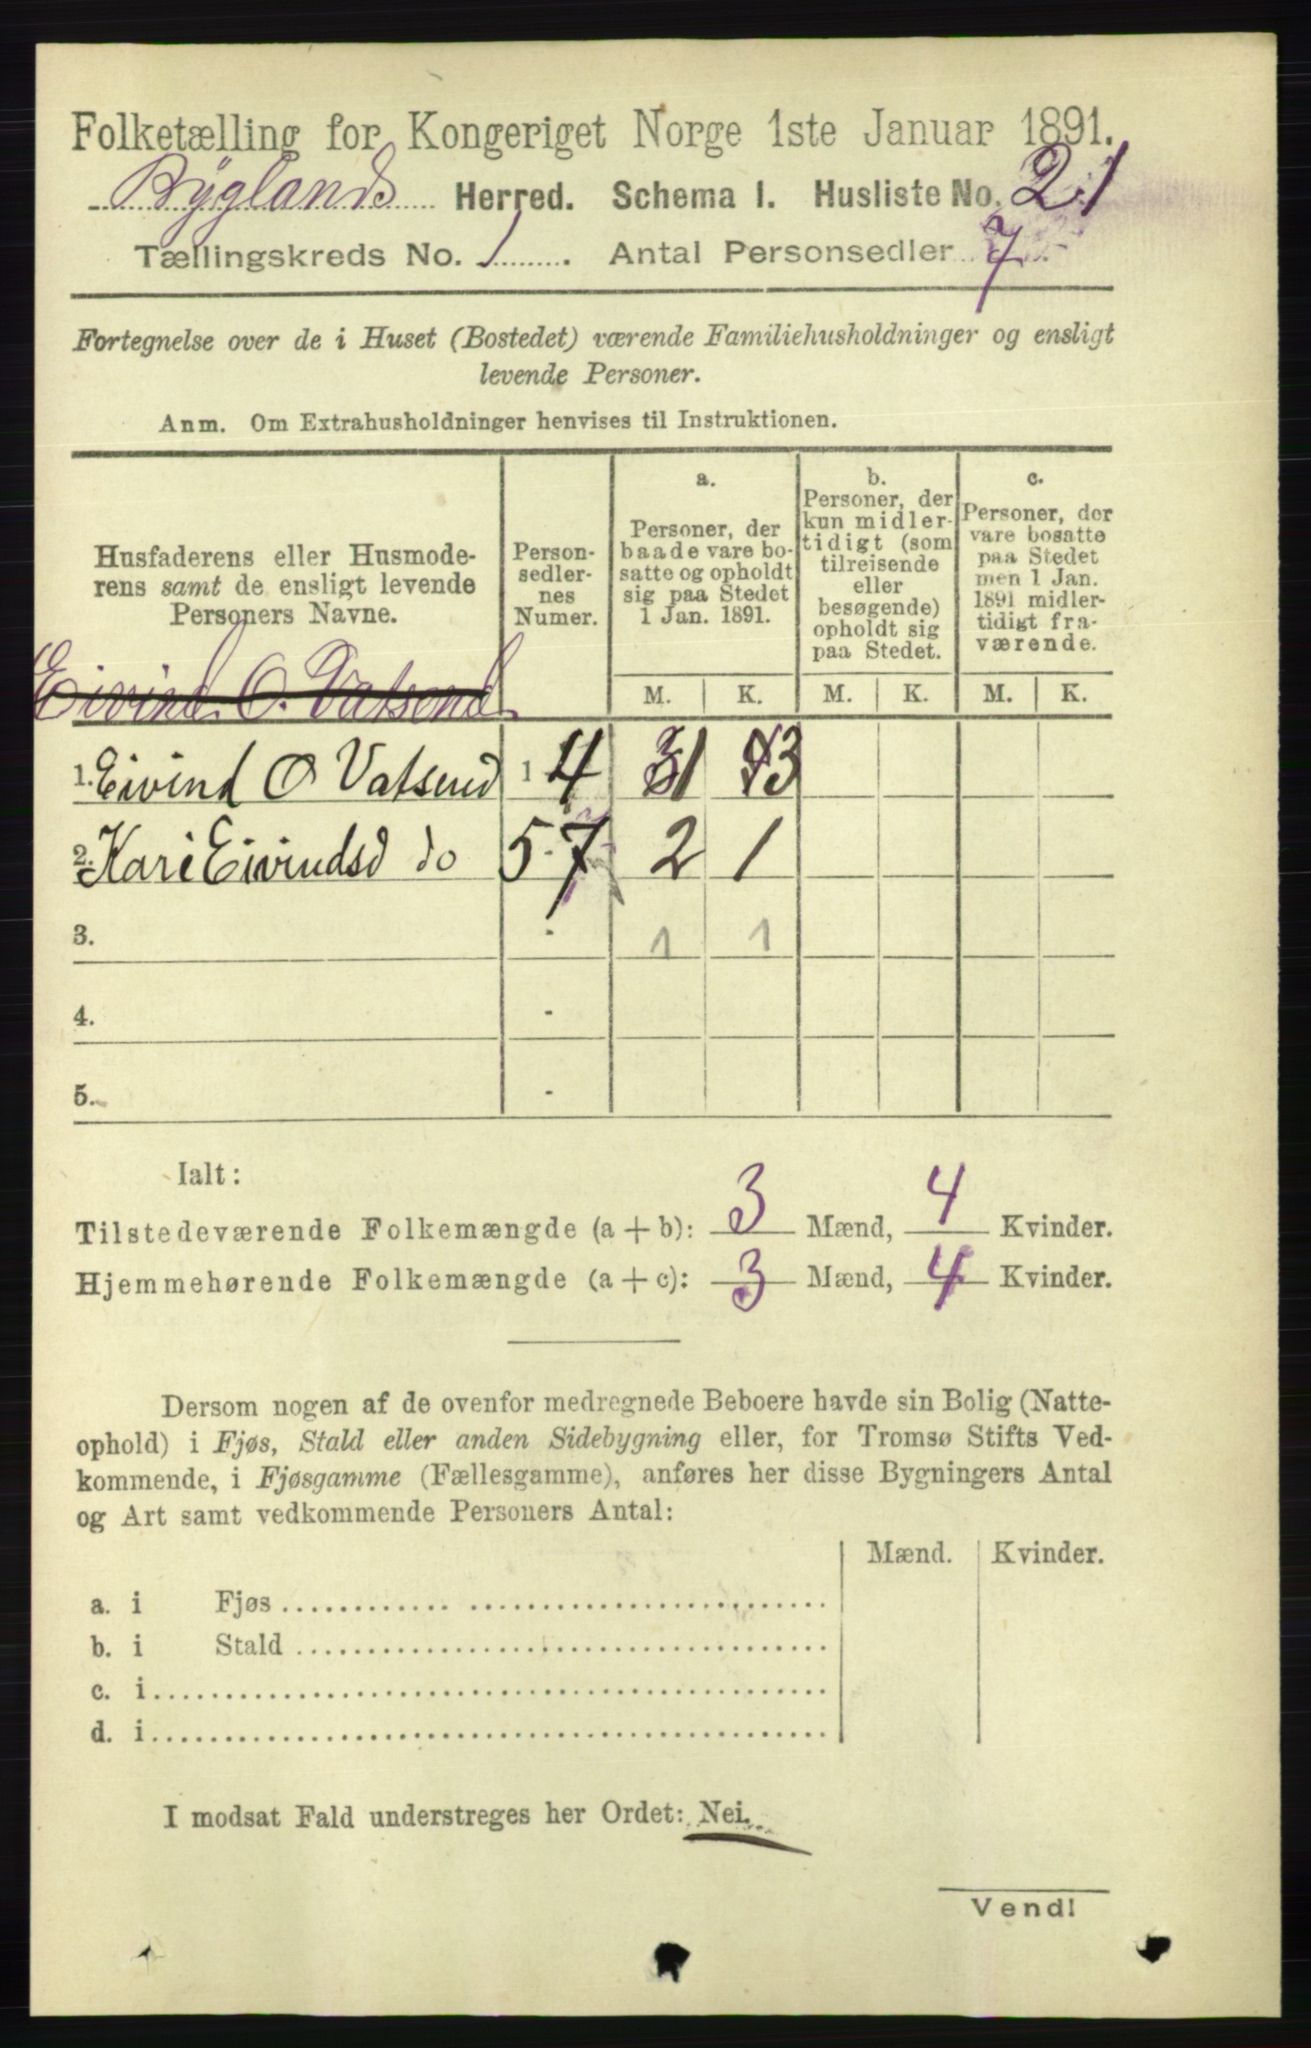 Folketælling for Kongeriget Norge 1ste Januar 1891.
Byglands Herred. Schema 1. Husliste No. 21
Tællingskreds No. 1. Antal Personsedler 7
Fortegnelse over de i Huset (Bostedet) værende Familiehusholdninger og ensligt
levende Personer.
Anm. Om Extrahusholdninger henvises til Instruktionen.
Husfaderens eller Husmode-
rens samt de ensligt levende
Personers Navne.
Person-
sedler-
nes
Numer.
a.
Personer, der
baade vare bo-
satte og opholdt
sig paa Stedet
1 Jan. 1891.
b.
Personer, der
kun midler-
tidigt (som
tilreisende
eller
besøgende)
opholdt sig
paa Stedet.
c.
Personer, der
vare bosatte
paa Stedet
men 1 Jan.
1891 midler-
tidigt fra-
værende.
M. K. M. K. M. K.
Eivind O. Vatsend
1. Eivind O Vatsend 1 4 1 3
2. Kari Eivindsd do 5-7 2 1
3. - 1 1
4. -
5. -
Ialt:
Tilstedeværende Folkemængde (a + b): 3 Mænd, 4 Kvinder.
Hjemmehørende Folkemængde (a + c): 3 Mænd, 4 Kvinder.
Dersom nogen af de ovenfor medregnede Beboere havde sin Bolig (Natte-
ophold) i Fjøs, Stald eller anden Sidebygning eller, for Tromsø Stifts Ved-
kommende, i Fjøsgamme (Fællesgamme), anføres her disse Bygningers Antal
og Art samt vedkommende Personers Antal:
Mænd. Kvinder.
a. i Fjøs
b. i Stald
c. i
d. i
I modsat Fald understreges her Ordet: Nei.
Vend!